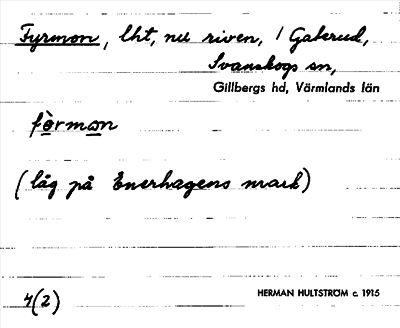 Fyrmon, lht, nu riven, / Galsrud,
Svanskogs sn,
Gillbergs hd, Värmlands län
fò̱rmo̱n
(låg på Enerhagens mark)
4(2)
HERMAN HULTSTRÖM c. 1915